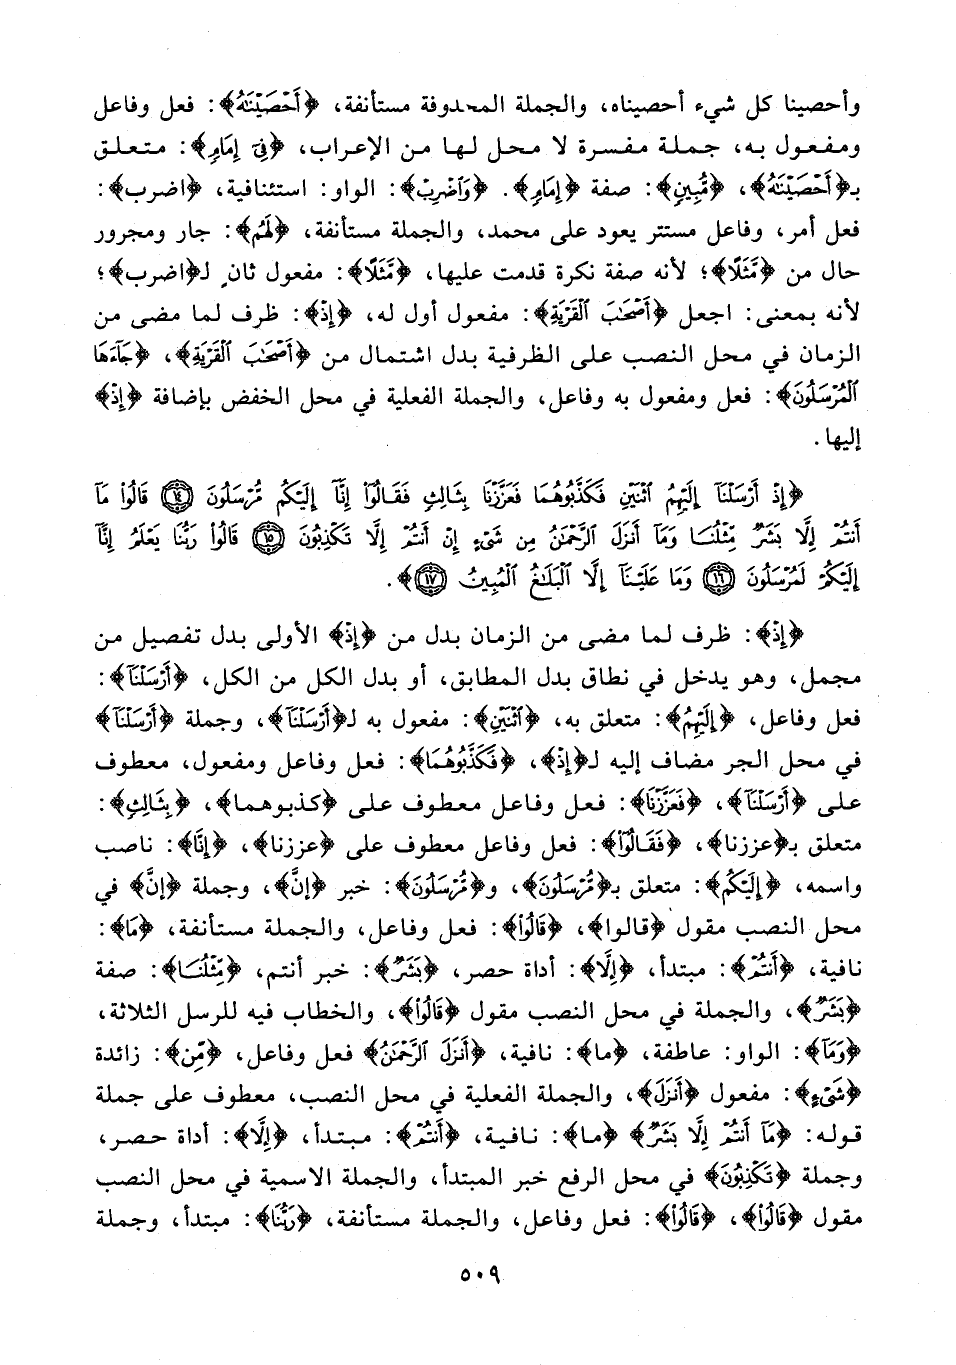 وأحصينا كل شيء أحصيناه، والجملة المحذوفة مستأنفة، ﴿أَحْصَيْنَٰهُ﴾: فعل وفاعل
ومفعول به، جملة مفسرة لا محل لها من الإعراب، ﴿فِىٓ إِمَامٍ﴾: متعلق
بـ﴿أَحْصَيْنَٰهُ﴾، ﴿مُّبِينٍ﴾: صفة ﴿إِمَامٍ﴾. ﴿وَٱضْرِبْ﴾: الواو: استئنافية، ﴿اضرب﴾:
فعل أمر، وفاعل مستتر يعود على محمد، والجملة مستأنفة، ﴿لَهُم﴾: جار ومجرور
حال من ﴿مَّثَلًا﴾؛ لأنه صفة نكرة قدمت عليها، ﴿مَّثَلًا﴾: مفعول ثانٍ لـ﴿اضرب﴾؛
لأنه بمعنى: اجعل ﴿أَصْحَٰبَ ٱلْقَرْيَةِ﴾: مفعول أول له، ﴿إِذْ﴾: ظرف لما مضى من
الزمان في محل النصب على الظرفية بدل اشتمال من ﴿أَصْحَٰبَ ٱلْقَرْيَةِ﴾، ﴿جَآءَهَا
ٱلْمُرْسَلُونَ﴾: فعل ومفعول به وفاعل، والجملة الفعلية في محل الخفض بإضافة ﴿إِذْ﴾
إليها.
﴿إِذْ أَرْسَلْنَآ إِلَيْهِمُ ٱثْنَيْنِ فَكَذَّبُوهُمَا فَعَزَّزْنَا بِثَالِثٍ فَقَالُوٓا۟ إِنَّآ إِلَيْكُم مُّرْسَلُونَ ١٤ قَالُوا۟ مَآ
أَنتُمْ إِلَّا بَشَرٌ مِّثْلُنَا وَمَآ أَنزَلَ ٱلرَّحْمَٰنُ مِن شَىْءٍ إِنْ أَنتُمْ إِلَّا تَكْذِبُونَ ١٥ قَالُوا۟ رَبُّنَا يَعْلَمُ إِنَّآ
إِلَيْكُمْ لَمُرْسَلُونَ ١٦ وَمَا عَلَيْنَآ إِلَّا ٱلْبَلَٰغُ ٱلْمُبِينُ ١٧﴾.
﴿إِذْ﴾: ظرف لما مضى من الزمان بدل من ﴿إِذْ﴾ الأولى بدل تفصيل من
مجمل، وهو يدخل في نطاق بدل المطابق، أو بدل الكل من الكل، ﴿أَرْسَلْنَآ﴾:
فعل وفاعل، ﴿إِلَيْهِمُ﴾: متعلق به، ﴿ٱثْنَيْنِ﴾: مفعول به لـ﴿أَرْسَلْنَآ﴾، وجملة ﴿أَرْسَلْنَآ﴾
في محل الجر مضاف إليه لـ﴿إِذْ﴾، ﴿فَكَذَّبُوهُمَا﴾: فعل وفاعل ومفعول، معطوف
على ﴿أَرْسَلْنَآ﴾، ﴿فَعَزَّزْنَا﴾: فعل وفاعل معطوف على ﴿كذبوهما﴾، ﴿بِثَالِثٍ﴾:
متعلق بـ﴿عززنا﴾، ﴿فَقَالُوٓا۟﴾: فعل وفاعل معطوف على ﴿عززنا﴾، ﴿إِنَّآ﴾: ناصب
واسمه، ﴿إِلَيْكُم﴾: متعلق بـ﴿مُّرْسَلُونَ﴾، و﴿مُّرْسَلُونَ﴾: خبر ﴿إنَّ﴾، وجملة ﴿إنَّ﴾ في
محل النصب مقول ﴿قالوا﴾، ﴿قَالُوا۟﴾: فعل وفاعل، والجملة مستأنفة، ﴿مَآ﴾:
نافية، ﴿أَنتُمْ﴾: مبتدأ، ﴿إِلَّا﴾: أداة حصر، ﴿بَشَرٌ﴾: خبر أنتم، ﴿مِّثْلُنَا﴾: صفة
﴿بَشَرٌ﴾، والجملة في محل النصب مقول ﴿قَالُوا۟﴾، والخطاب فيه للرسل الثلاثة،
﴿وَمَآ﴾: الواو: عاطفة، ﴿ما﴾: نافية، ﴿أَنزَلَ ٱلرَّحْمَٰنُ﴾ فعل وفاعل، ﴿مِّن﴾: زائدة
﴿شَىْءٍ﴾: مفعول ﴿أَنزَلَ﴾، والجملة الفعلية في محل النصب، معطوف على جملة
قوله: ﴿مَآ أَنتُمْ إِلَّا بَشَرٌ﴾ ﴿ما﴾: نافية، ﴿أَنتُمْ﴾: مبتدأ، ﴿إِلَّا﴾: أداة حصر،
وجملة ﴿تَكْذِبُونَ﴾ في محل الرفع خبر المبتدأ، والجملة الاسمية في محل النصب
مقول ﴿قَالُوا۟﴾، ﴿قَالُوا۟﴾: فعل وفاعل، والجملة مستأنفة، ﴿رَبُّنَا﴾: مبتدأ، وجملة
٥٠٩